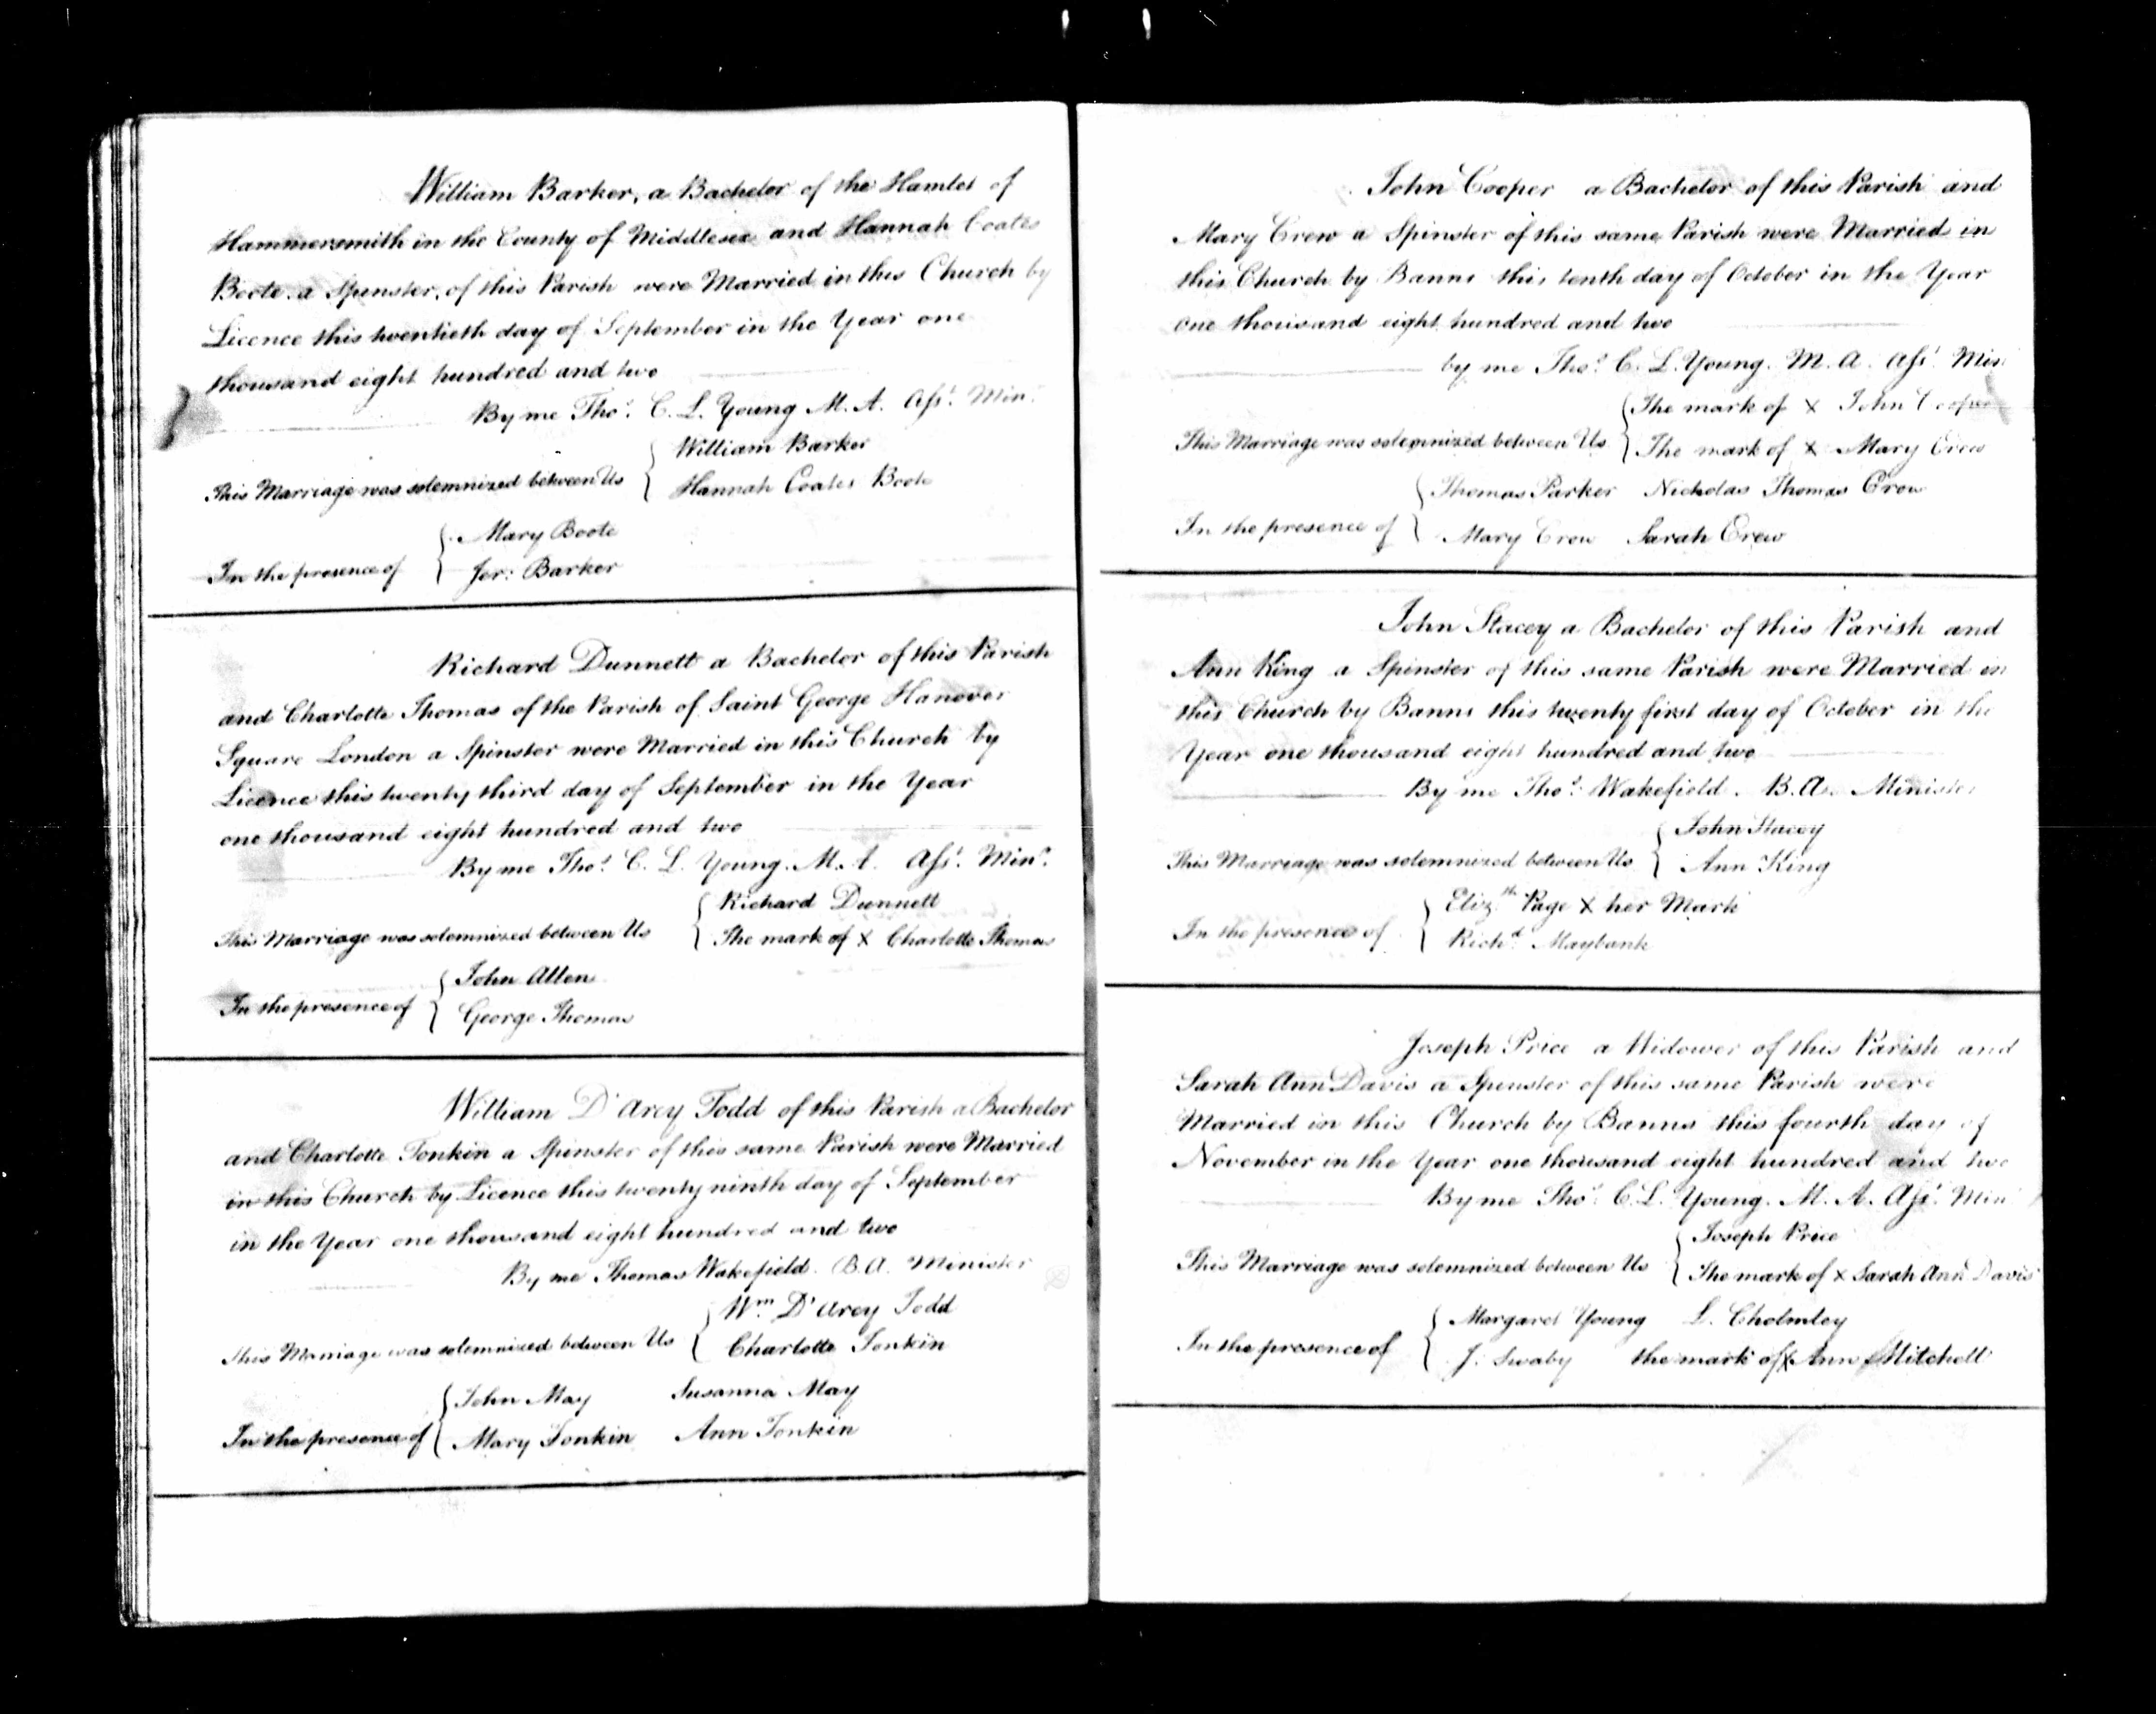 William Barker, a Bachelor of the Hamlet of
Hammersmith in the County of Middlesex and Hannah Coates
Boote a Spinster, of this Parish were Married in this Church by
Licence this twentieth day of September in the Year one
thousand eight hundred and two
By me Thos. C. L. Young M. A. Asst. Min.
This Marriage was solemnized between Us { William Barker
Hannah Coates Boote
In the presence of { Mary Boote
Jer: Barker
Richard Dunnett a Bachelor of this Parish
and Charlotte Thomas of the Parish of Saint George Hanover
Square London a Spinster were Married in this Church by
Licence this twenty third day of September in the Year
one thousand eight hundred and two
By me Thos. C. L. Young. M. A. Asst. Minr.
This Marriage was solemnized between Us { Richard Dunnett
The mark of X Charlotte Thomas
In the presence of { John Allen
George Thomas
William D'Arcy Todd of this Parish a Bachelor
and Charlotte Tonkin a Spinster of this same Parish were Married
in this Church by Licence this twenty ninth day of September
in the Year one thousand eight hundred and two
By me Thomas Wakefield. B. A. Minister
This Marriage was solemnized between Us { Wm. D'Arcy Todd
Charlotte Tonkin
In the presence of { John May Susanna May
Mary Tonkin Ann Tonkin
John Cooper a Bachelor of this Parish and
Mary Crew a Spinster of this same Parish were Married in
this Church by Banns this tenth day of October in the Year
one thousand eight hundred and two
by me Thos. C. L. Young. M. A. Asst. Min.
This Marriage was solemnized between Us { The mark of X John Cooper
The mark of X Mary Crew
In the presence of { Thomas Parker Nicholas Thomas Crow
Mary Crow Sarah Crew
John Stacey a Bachelor of this Parish and
Ann King a Spinster of this same Parish were Married in
this Church by Banns this twenty first day of October in the
Year one thousand eight hundred and two
By me Thos. Wakefield. B. A. Minister
This Marriage was solemnized between Us { John Stacey
Ann King
In the presence of { Elizth. Page X her Mark
Richd. Maybank
Joseph Price a Widower of this Parish and
Sarah Ann Davis a Spinster of this same Parish were
Married in this Church by Banns this fourth day of
November in the Year one thousand eight hundred and two
By me Thos. C. L. Young. M. A. Asst. Min
This Marriage was solemnized between Us { Joseph Price
The mark of X Sarah Ann Davis
In the presence of { Margaret Young L. Cholmley
J. Swaby the mark of X Ann Mitchell